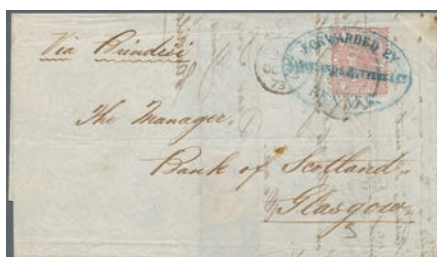 Via Brindisi
FORWARDED BY
The Manager,
Bank of Scotland
Glasgow